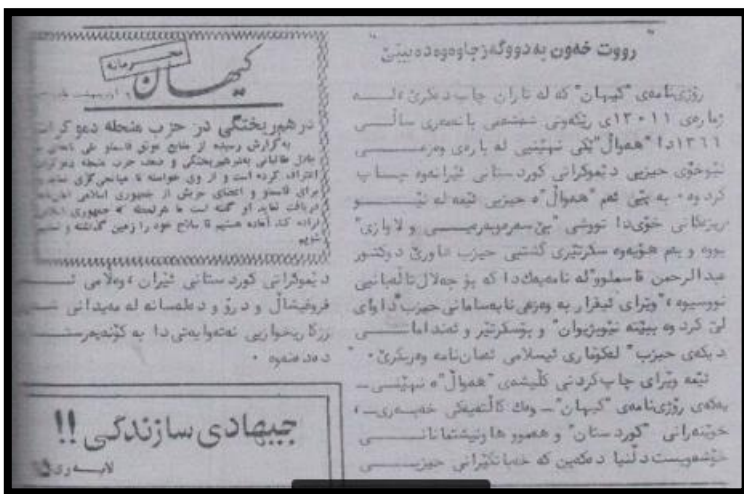 رووت خەون بە دووگەز جاوەوە دەبینێ
رۆژنامەی "کیهان" کە لە تاران چاپ دەکرێ، لە
ژمارەی ١٣٠١١ی رێکەوتی شەممەی بانەمەری ساڵی
١٣٦٦دا "هەواڵ"ێکی نهێنیی لە بارەی وەزعی
نێوخۆی حیزبی دێموکراتی کوردستانی ئێرانەوە چاپ
کردوە. بە پێی ئەم "هەواڵ"ە حیزبی ئێمە لە نێو
ریزەکانی خۆیدا تووشی "بێ سەروبەرەیی و لاوازی"
بووە و بەم هۆیەوە سکرتێری گشتیی حیزب هاوڕێ دوکتور
عبدالرحمن قاسملوو لە نامەیەکدا کە بۆ جەلال تاڵەبانیی
نووسیوە، "وێرای ئیقرار بە وەزعی نابەسامانی حیزب" داوای
لێ کردوە ببێتە نێوبژیوان" و بۆ سکرتێر و ئەندامانی
دیکەی حیزب" لە کۆماری ئیسلامی ئەمان‌نامە وەربگرێ."
ئێمە وێرای چاپ کردنی کلیشەی "هەواڵ"ە نهێنی-
یەکەی رۆژنامەی "کیهان" ــ وەک کاڵتەیەکی خەبەری ــ،
خوێنەرانی "کوردستان" و هەموو هاونیشتمانانی
خۆشەویست دڵنیا دەکەین کە خەباتگێرانی حیزبی
محرمانه
کیهان
درهم‌ریختگی در حزب منحله دموکرات
به گزارش رسیده از منابع موثق قاسملو طی نامه‌ای به
جلال طالبانی به درهم‌ریختگی و ضعف حزب منحله دموکرات
اعتراف کرده است و از وی خواسته تا میانجی‌گری نماید و
برای قاسملو و اعضای حزبش از جمهوری اسلامی امان‌نامه
دریافت نماید او گفته است ما هر لحظه که جمهوری اسلامی
اراده کند آماده هستیم تا سلاح خود را زمین گذاشته و تسلیم
شویم
دێموکراتی کوردستانی ئێران، وەڵامی ئە
فروفیشاڵ و درۆ و دەلەسانە لە مەیدانی شە
رزگاریخوازیی نەتەوایەتیدا بە کۆنەپەرست
دەدەنەوە.
جیهادی سازندگی !!
لاپەڕی ۵